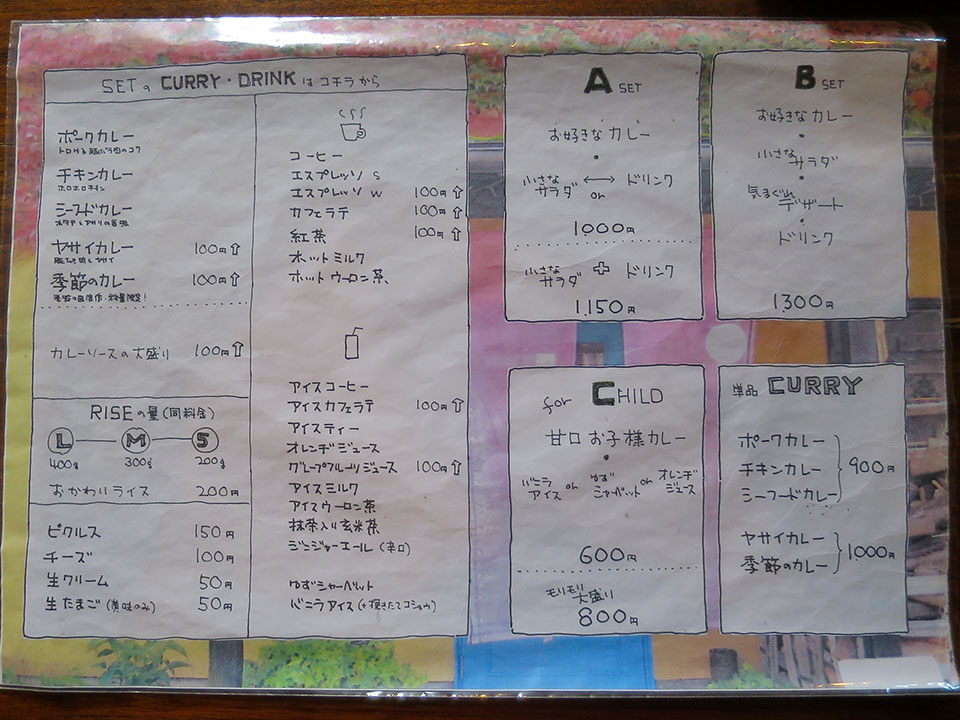 SETの CURRY・DRINKはコチラから
ポークカレー
トロける豚バラ肉のコク
チキンカレー
ホロホロチキン
シーフードカレー
ヤサイカレー 100円⇧
季節のカレー 100円⇧
カレーソースの大盛り 100円⇧
RISEの量(同料金)
L M S
400g 300g 200g
おかわりライス 200円
ピクルス 150円
チーズ 100円
生クリーム 50円
生たまご(黄味のみ) 50円
コーヒー
エスプレッソ S
エスプレッソ W 100円⇧
カフェラテ 100円⇧
紅茶 100円⇧
ホットミルク
ホットウーロン茶
アイスコーヒー
アイスカフェラテ 100円⇧
アイスティー
オレンヂジュース
グレープフルーツジュース 100円⇧
アイスミルク
アイスウーロン茶
抹茶入り玄米茶
ジンジャーエール(辛口)
ゆずシャーベット
バニラアイス(+挽きたてコショウ)
A SET
お好きなカレー
・
小さなサラダ ↔ or ドリンク
1000円
小さなサラダ + ドリンク
1,150円
B SET
お好きなカレー
・
小さなサラダ
・
気まぐれデザート
・
ドリンク
1300円
for CHILD
甘口お子様カレー
・
バニラアイス or ゆずシャーベット or オレンヂジュース
600円
モリモリ大盛り
800円
単品 CURRY
ポークカレー
チキンカレー 900円
シーフードカレー
ヤサイカレー
季節のカレー 1000円